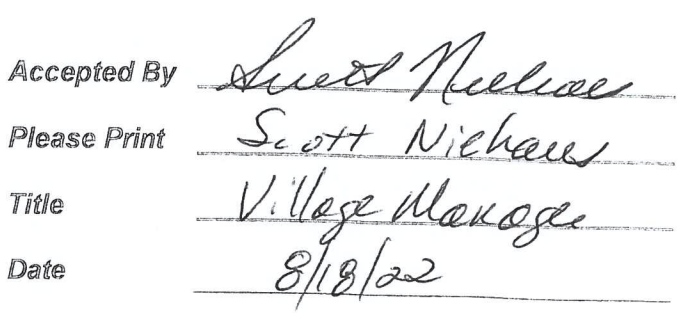 Accepted By Scott Niehaus
Please Print Scott Niehaus
Title Village Manager
Date 8/18/22